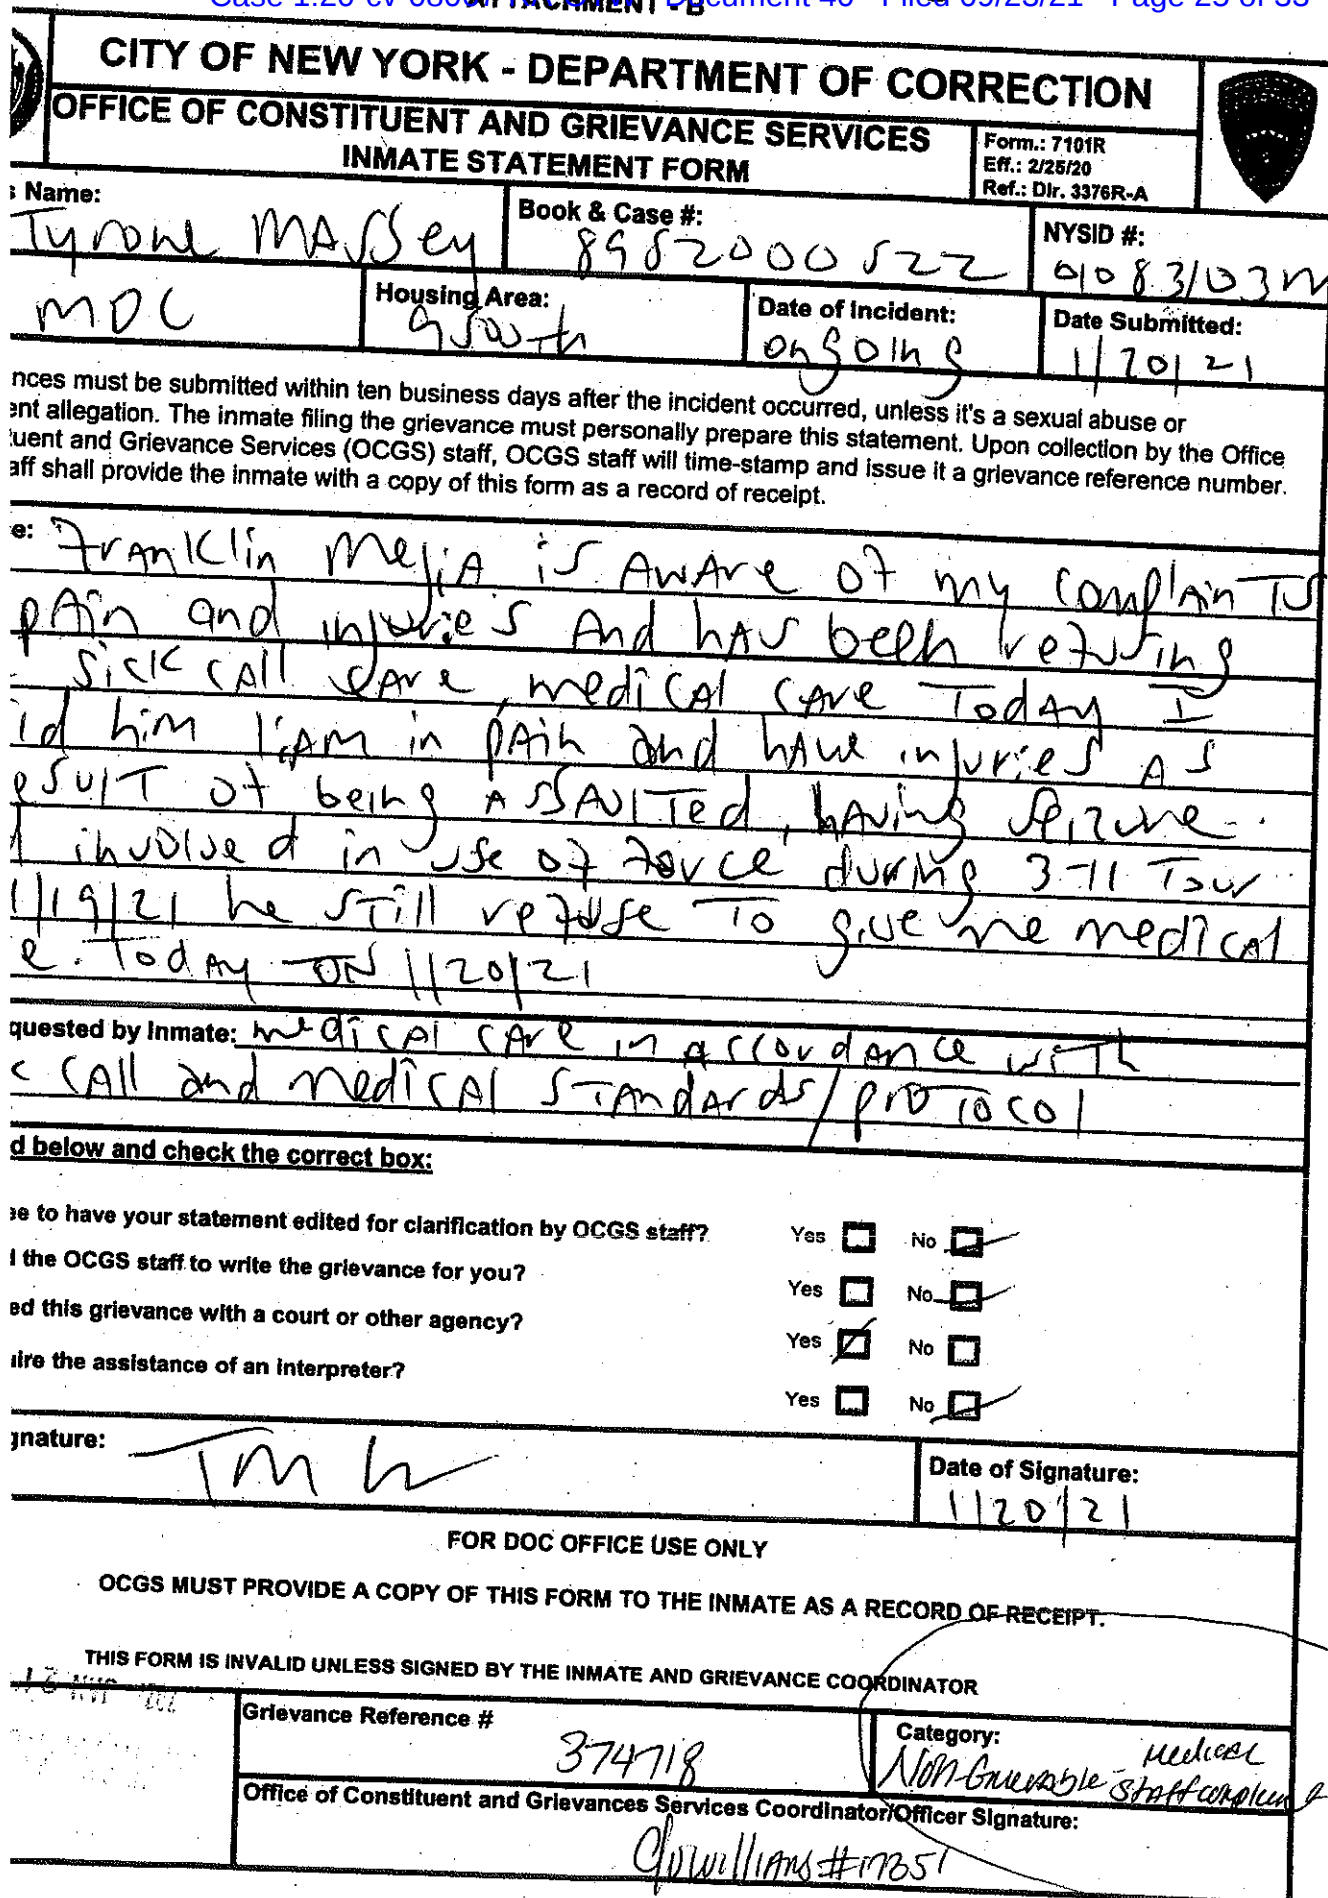 ATTACHMENT - B
Document 40 Filed 09/23/21 Page 25 of 33
CITY OF NEW YORK - DEPARTMENT OF CORRECTION
OFFICE OF CONSTITUENT AND GRIEVANCE SERVICES
INMATE STATEMENT FORM
Form.: 7101R
Eff.: 2/25/20
Ref.: Dir. 3376R-A
Name:
Tyrone MASSey
Book & Case #:
8952000522
NYSID #:
01083103M
MDC
Housing Area:
9south
Date of Incident:
ongoing
Date Submitted:
1/20/21
nces must be submitted within ten business days after the incident occurred, unless it's a sexual abuse or
ent allegation. The inmate filing the grievance must personally prepare this statement. Upon collection by the Office
uent and Grievance Services (OCGS) staff, OCGS staff will time-stamp and issue it a grievance reference number.
aff shall provide the inmate with a copy of this form as a record of receipt.
e: Franklin MejiA is AWAre of my complAinTS
pAin and injurie's And hAS been refusing
sick cAll care, medicAl cAre TodAy I
id him I'AM in pAin and hAve injuries AS
esulT of being ASSAulTed, hAving Seizure
d involved in use of force during 3-11 Tour
1/19/21 he STill refuse To give me medicAl
e. TodAy ON 1/20/21
quested by Inmate: medicAl cAre in accordAnce wiTh
c cAll and medicAl STAndards/proTocol
d below and check the correct box:
ee to have your statement edited for clarification by OCGS staff? Yes No
the OCGS staff to write the grievance for you? Yes No
ed this grievance with a court or other agency? Yes No
uire the assistance of an interpreter? Yes No
gnature:
Date of Signature:
1/20/21
FOR DOC OFFICE USE ONLY
OCGS MUST PROVIDE A COPY OF THIS FORM TO THE INMATE AS A RECORD OF RECEIPT.
THIS FORM IS INVALID UNLESS SIGNED BY THE INMATE AND GRIEVANCE COORDINATOR
Grievance Reference #
374718
Category:
Non-Grievable- Medical
Staff complaint
Office of Constituent and Grievances Services Coordinator/Officer Signature:
Williams #17351